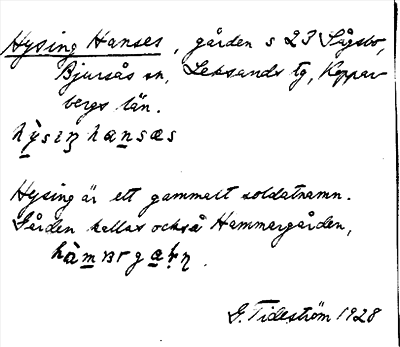 Hysing Hanses, gården s 23 Sågsbo,
Bjursås sn, Leksands tg, Koppar-
bergs län.
hỳsiŋ hansas
Hysing är ett gammalt soldatnamn.
Gården kallas också Hammargården,
hàmargaɳ.
G. Tideström 1928